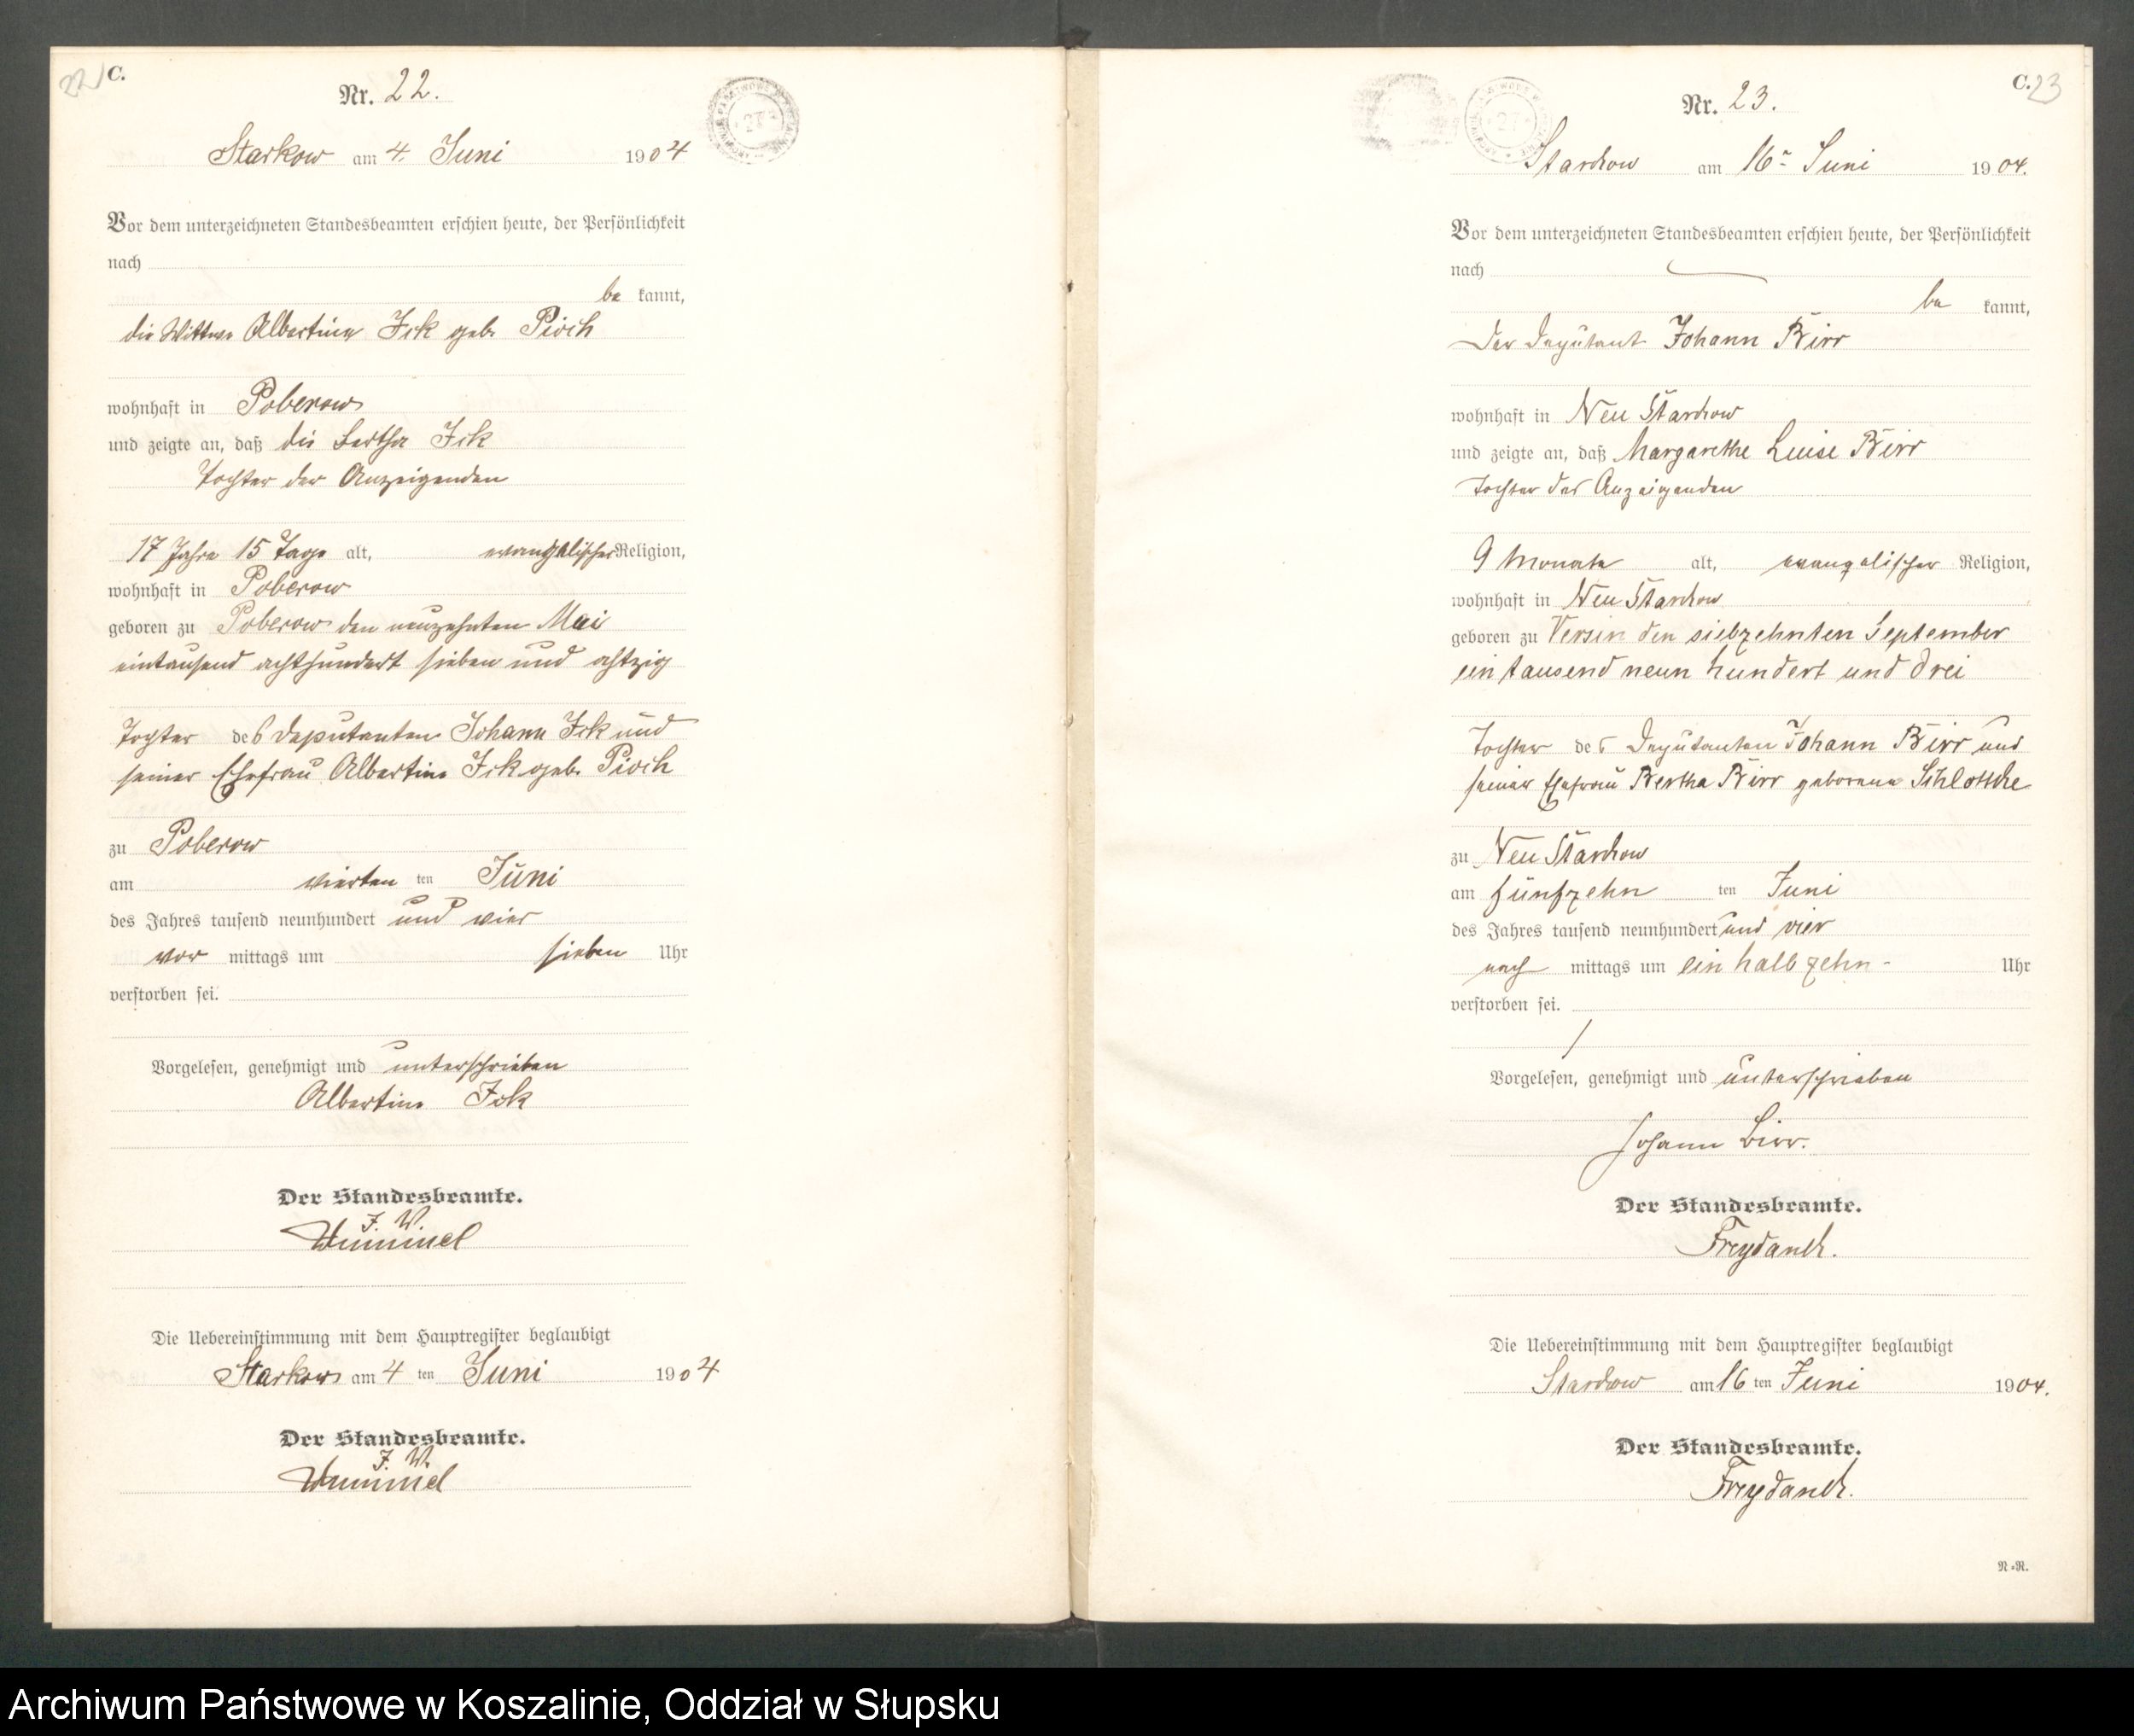 22
C.
Nr. 22.
Starkow am 4. Juni 1904
Vor dem unterzeichneten Standesbeamten erschien heute, der Persönlichkeit
nach
be kannt,
die Wittwe Albertine Ick geb. Pioch
wohnhaft in Poberow
und zeigte an, daß die Bertha Ick
Tochter der Anzeigenden
17 Jahre 15 Tage alt, evangelischer Religion,
wohnhaft in Poberow
geboren zu Poberow den neunzehnten Mai
eintausend achthundert sieben und achtzig
Tochter des Deputanten Johann Ick und
seiner Ehefrau Albertine Ick geb. Pioch
zu Poberow
am vierten ten Juni
des Jahres tausend neunhundert und vier
vor mittags um sieben Uhr
verstorben sei.
Vorgelesen, genehmigt und unterschrieben
Albertine Ick
Der Standesbeamte.
J. W.
Die Uebereinstimmung mit dem Hauptregister beglaubigt
Starkow am 4 ten Juni 1904
Der Standesbeamte.
J. W.
C. 23
Nr. 23.
Starckow am 16n Juni 1904.
Vor dem unterzeichneten Standesbeamten erschien heute, der Persönlichkeit
nach
be kannt,
Der Deputant Johann Birr
wohnhaft in Neu Starckow
und zeigte an, daß Margarethe Luise Birr
Tochter des Anzeigenden
9 Monate alt, evangelischer Religion,
wohnhaft in Neu Starckow
geboren zu Versin den siebzehnten September
ein tausend neun hundert und drei
Tochter des Deputanten Johann Birr und
seiner Ehefrau Bertha Birr geborene Schlottcke
zu Neu Starckow
am fünfzehn ten Juni
des Jahres tausend neunhundert und vier
nach mittags um ein halb zehn - Uhr
verstorben sei.
Vorgelesen, genehmigt und unterschrieben
Johann Birr.
Der Standesbeamte.
Freydanck.
Die Uebereinstimmung mit dem Hauptregister beglaubigt
Starckow am 16 ten Juni 1904.
Der Standesbeamte.
Freydanck.
N.-R.
Archiwum Państwowe w Koszalinie, Oddział w Słupsku